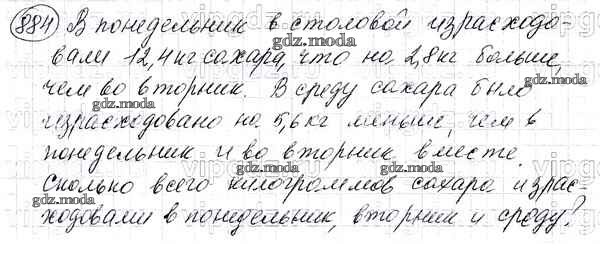 884) В понедельник в столовой израсходо-
вали 12,4 кг сахара, что на 2,8 кг больше,
чем во вторник. В среду сахара было
израсходовано на 5,6 кг меньше, чем в
понедельник и во вторник вместе.
Сколько всего килограммов сахара израс-
ходовали в понедельник, вторник и среду?
gdz.moda
gdz.moda
gdz.moda
gdz.moda
gdz.moda
gdz.moda
gdz.moda
gdz.moda
gdz.moda
gdz.moda
gdz.moda